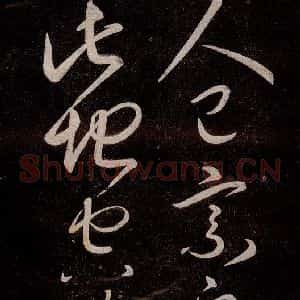 人已家
此地也
Shufawang.CN